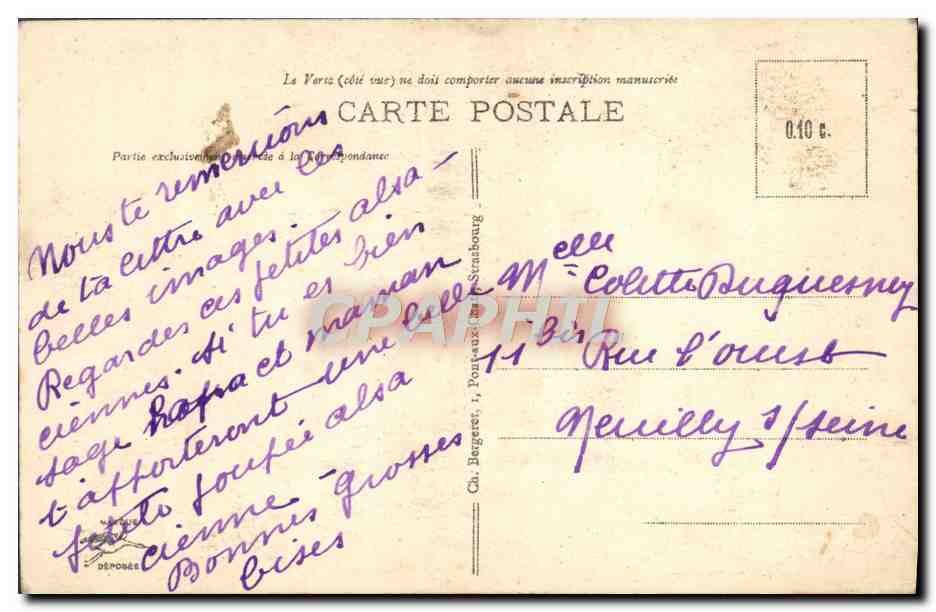 Le Verso (côté vue) ne doit comporter aucune inscription manuscrite
CARTE POSTALE
0.10 c.
Partie exclusivement à la Correspondance
Nous te remercions
de ta lettre avec ces
belles images.
Regardes ces petites alsa-
ciennes. si tu es bien
sage papa et maman
t'apporteront une belle
petite poupée alsa
cienne - grosses
Bonnes
bises
MARQUE
DÉPOSÉE
Ch. Bergeret, 1, Pont-aux-Chats, Strasbourg
CPAPHIL
Melle Colette Duquesney
11 bis Rue l'ouest
Neuilly s/seine